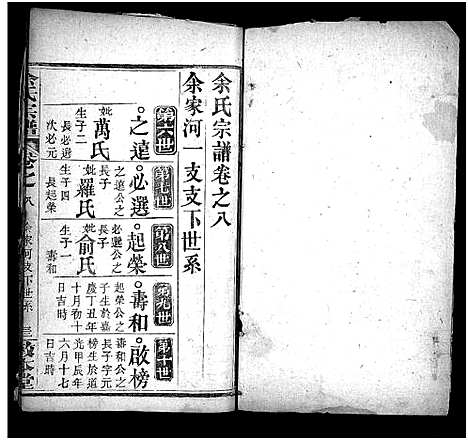 余氏宗譜卷之八
余家河一支支下世系
第六世
之遠
妣萬氏
生子二
長必選
次必元
第七世
必選
之遠公之
長子
妣羅氏
生子四
長起榮
第八世
起榮
必選公之
長子
妣俞氏
生子一
壽和
第九世
壽和
起榮公之
子生於嘉
慶丁丑年
十月初十
日吉時
第十世
啟榜
壽和公之
長子字元
榜生於道
光甲辰年
六月十七
日吉時
余氏宗譜
卷之八
余家河支下世系